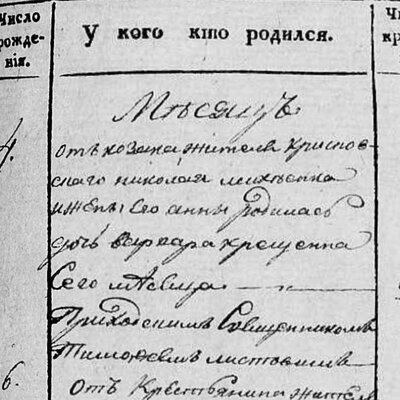 Число рожде- нія.
У кого кто родился.
Чи кр
Мѣсяцъ
4.
отъ козака жителя
скаго николая михѣенка
и жены его анны родилась
дочь варвара крещенна
Сего мѣсяца
Приходскимъ Священникомъ
Тимофеемъ
6.
отъ Крестьянина жителя